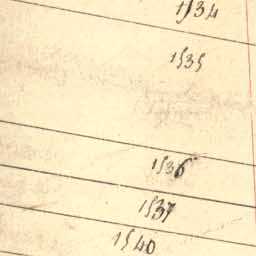 1534
1535
1536
1537
1540